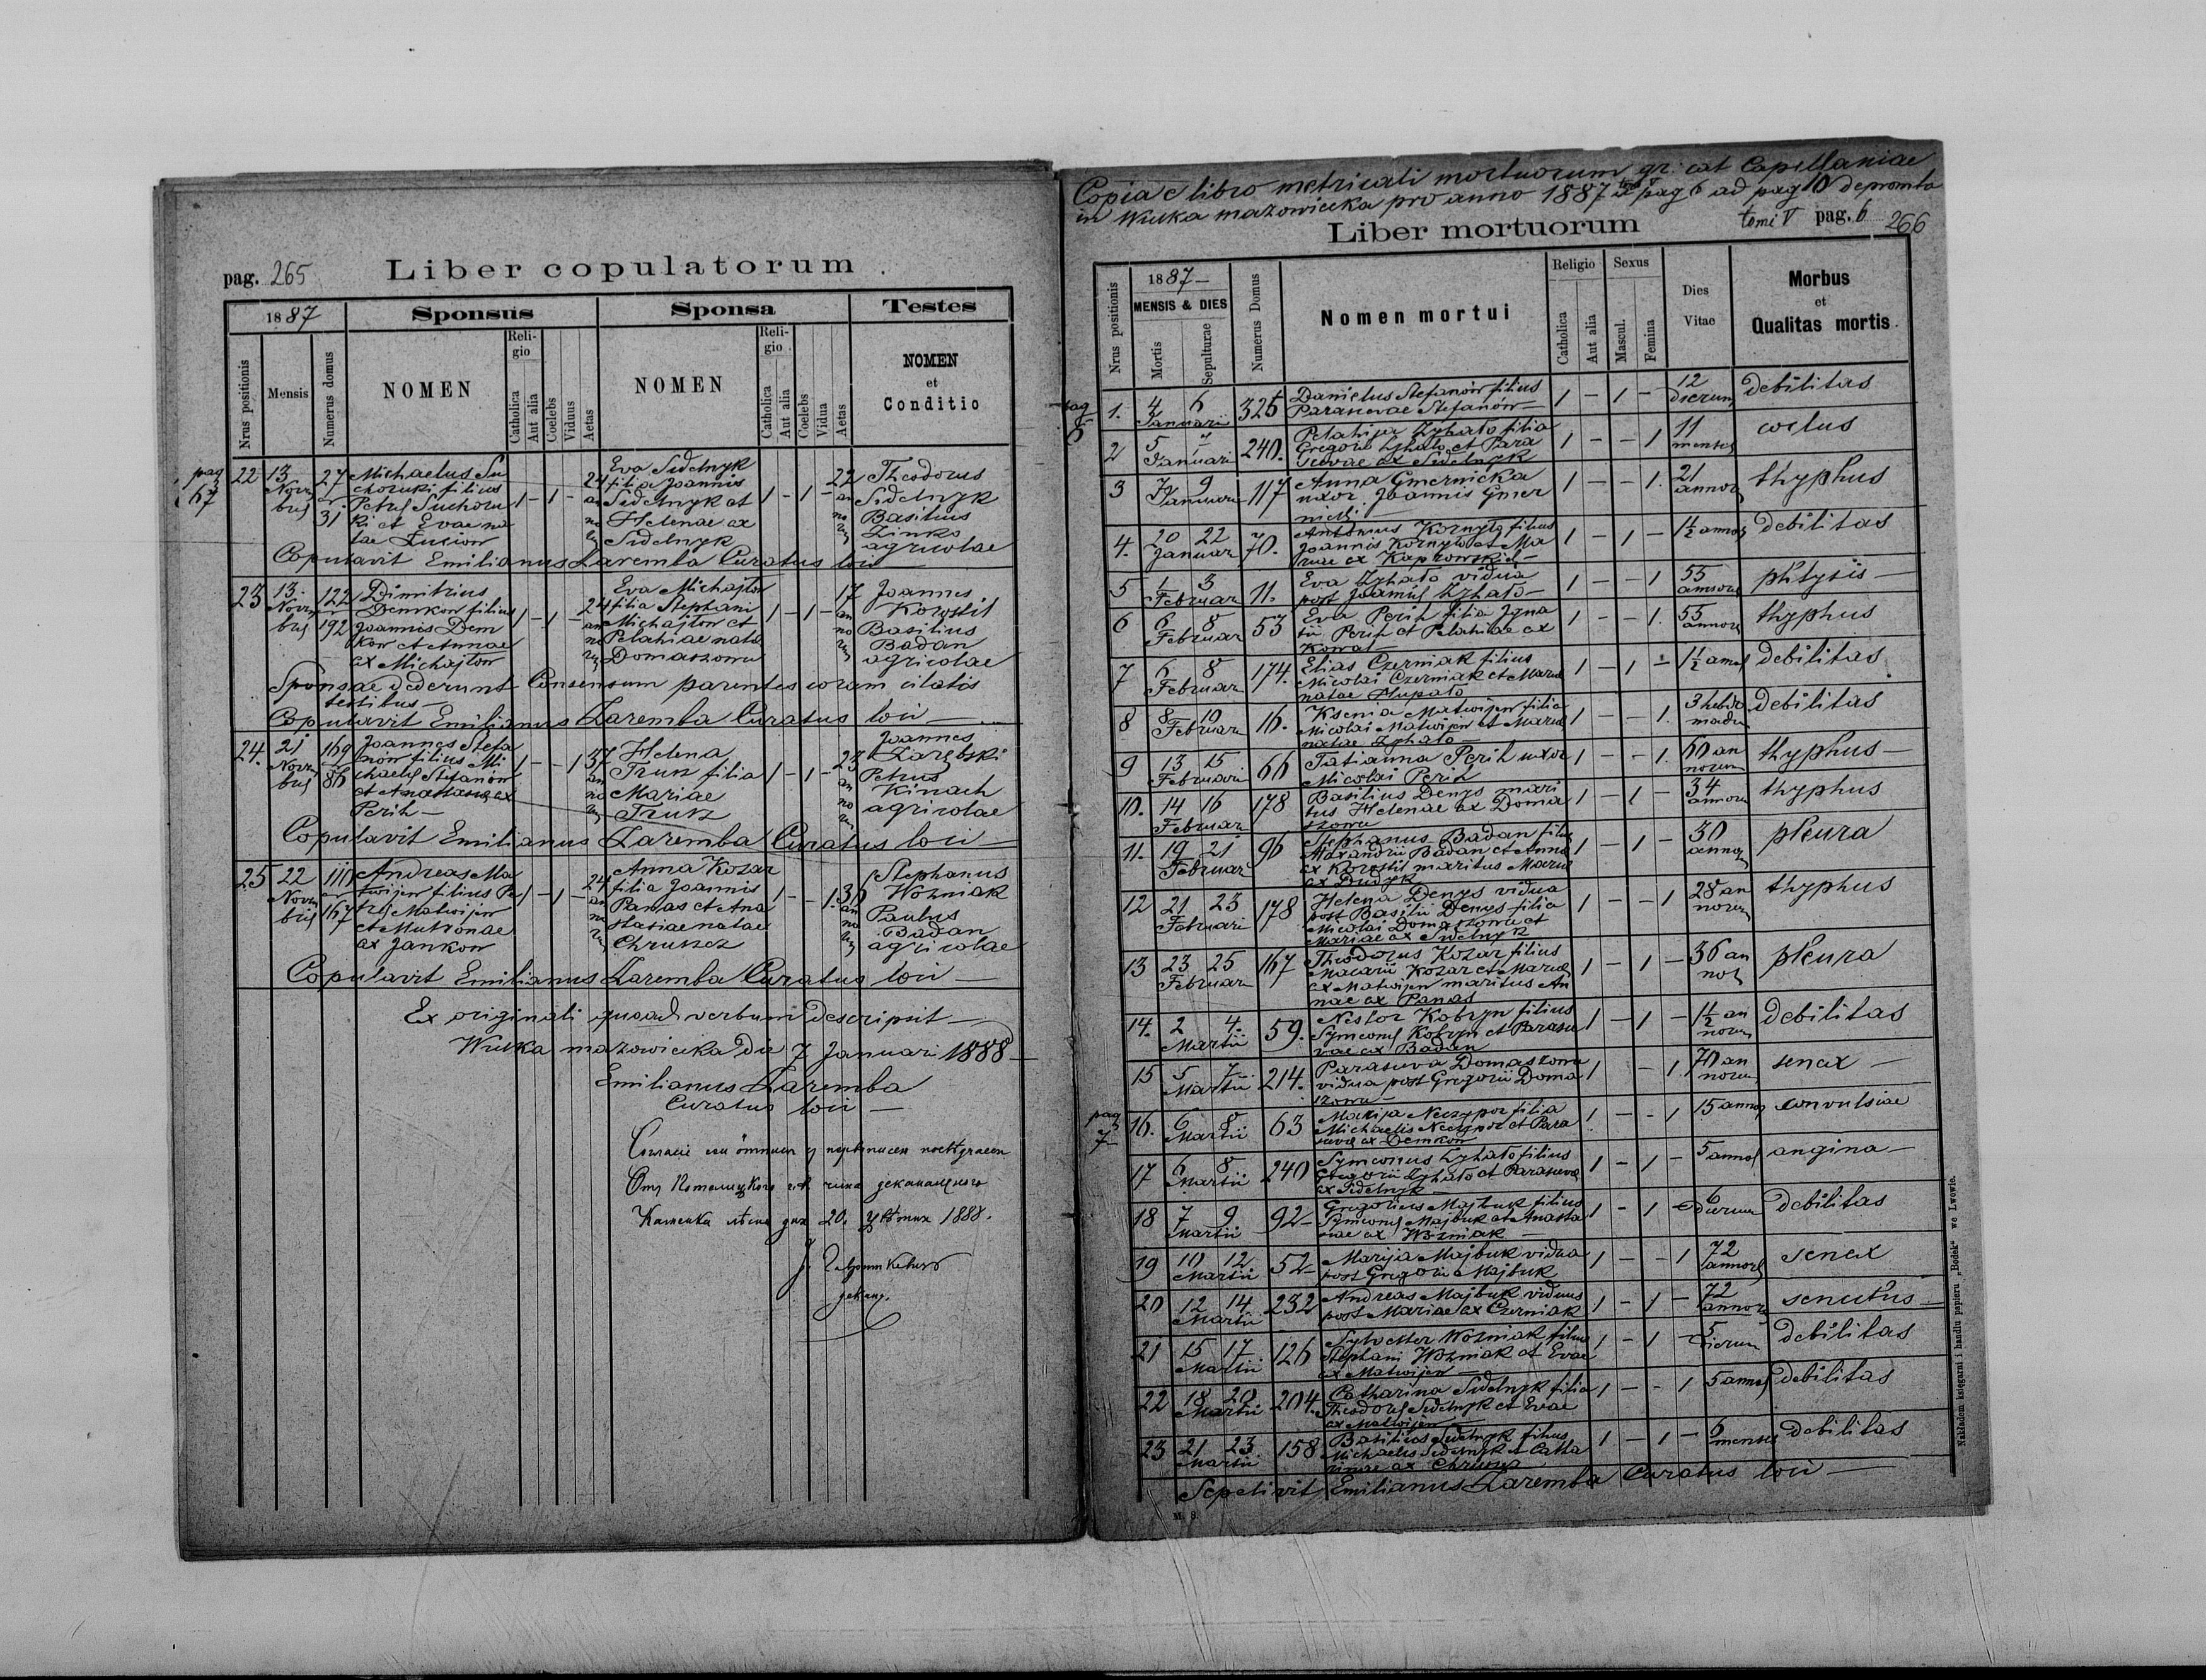 pag. 265 Liber copulatorum
1887 Sponsus Sponsa Testes
Nrus positionis Mensis Numerus domus NOMEN Religio Catholica Aut alia Coelebs Viduus Aetas NOMEN Religio Catholica Aut alia Coelebs Vidua Aetas NOMEN et Conditio
pag 67
22 13 Novembris 27 31
Michaelus Su
choruki filius
Petri Suchoru
ki et Evae na
tae
1 - 1 - 24 annorum
Eva Sidelnyk
filia Joannis
Sidelnyk et
Helenae ex
Sidelnyk
1 - 1 - 22 annorum
Theodorus
Sidelnyk
Basilius
Zinko
agricolae
Copulavit Emilianus Zaremba Curatus loci
23 13 Novembris 122 192
Dimitrius
Demkow filius
Joannis Dem
kow et Annae
ex Michajlow
1 - 1 - 24 annorum
Eva Michajlow
filia Stephani
Michajlow et
Pelahiae natae
Domaszowa
1 - 1 - 17 annorum
Joannes
Korostil
Basilius
Badan
agricolae
Sponsae dederunt Consensum parentes coram citatis
testibus
Copulavit Emilianus Zaremba Curatus loci
24. 21 Novembris 169 86
Joannes Stefa
nów filius Mi
chaelis Stefanów
et Anastasiae ex
Perih
1 - - 1 37 annorum
Helena
Trusz filia
Mariae
Trusz
1 - 1 - 23 annorum
Joannes
Zarębski
Petrus
Kinach
agricolae
Copulavit Emilianus Zaremba Curatus loci
25 22 Novembris 110 167
Andreas Ma
twijew filius Pe
tri Matwijew
et Matronae
ex Jankow
1 - 1 - 24 annorum
Anna Kozar
filia Joannis
Panas et Ana
stasiae natae
Chruszcz
1 - - 1. 30 annorum
Stephanus
Wozniak
Paulus
Badan
agricolae
Copulavit Emilianus Zaremba Curatus loci
Ex originali quoad verbum descripsit
Wulka mazowiecka die 7 Januari 1888
Emilianus Zaremba
Curatus loci
1888.
Copia e libro metricali mortuorum gr: cat Capellaniae
in Wulka mazowiecka pro anno 1887 a pag 6 ad pag 10 depromta
Liber mortuorum tomi V pag. 6 266
Nrus positionis 1887 MENSIS & DIES Mortis Sepulturae Numerus Domus Nomen mortui Religio Catholica Aut alia Sexus Mascul. Femina Dies Vitae Morbus et Qualitas mortis.
pag 6
1. 4 6 Januari 325 Danielus Stefanów filius
Parascevae Stefanów 1 - 1 - 12 dierum debilitas
2 5 " Januari 240. Pelahija Lyhato filia
Gregorii Lyhato et Para
scevae ex Sidelnyk 1 - - 1 11 menses
3 7 9 Januari 117 Anna Gmernicka
uxor Joannis Gmer
nicki 1 - - 1. 21 annor thyphus
4. 20 22 Januar 70. Antonius Kornyło filius
Joannis Kornyło et Ma
riae ex Kaprowski 1 - 1 - 1½ annor debilitas
5 1 3 Februar 11. Eva Lyhato vidua
post Joannis Lyhato 1 - - 1 55 annorum phtysis
6 6 8 Februar 53 Eva Perih filia Igna
tii Perih et Pelahiae ex
Kowal 1 - - 1. 55 annor thyphus
7 6 8 Februar 174. Elias Czerniak filius
Nicolai Czerniak et Mariae
natae Hupało 1 - 1 - 1½ annor debilitas
8 8 10 Februar 16. Ksenia Matwijew filia
Nicolai Matwijew et Mariae
natae Lyhato 1 - - 1. 3 hebdo
madar debilitas
9 13 15 Februari 66 Tatianna Perih uxor
Nicolai Perih 1 - - 1. 60 an
norum thyphus
10. 14 16 Februar 178 Basilius Denys mari
tus Helenae ex Doma
szowa 1 - 1 - 34 annorum thyphus
11. 19 21 Februar 96 Stephanus Badan filius
Alexandrii Badan et Annae
ex Korostil maritus Mariae
ex Dudyk 1 - 1 - 30 annor pleura
12 21 23 Februari 178 Helena Denys vidua
post Basilii Denys filia
Nicolai Domaszowa et
Mariae ex Sidelnyk 1 - - 1 28 an
norum thyphus
13 23 25 Februar 167 Theodorus Kozar filius
Macarii Kozar et Mariae
ex Matwijew maritus An
nae ex Panas 1 - 1 - 36 an
nor pleura
14. 2 4. Martii 59. Nestor Kobryn filius
Symeonis Kobryn et Parasce
vae ex Badan 1 - 1 - 1½ an
norum debilitas
15 5 7 Martii 214. Parasceva Domaszowa
vidua post Gregorii Doma
szowa 1 - 1 70 an
norum senex
pag 7
16. 6 8 Martii 63 Marija Neczypor filia
Michaelis Neczypor et Para
scevae ex Demkow 1. - - 1 15 annor convulsiae
17 6 8 Martii 240 Symeonus Lyhato filius
Gregorii Lyhato et Parascevae
ex Sidelnyk 1 - 1 - 5 annor angina
18 7 9 Martii 92 Gregorius Majbuk filius
Symeonis Majbuk et Anasta
siae ex Wozniak 1 - 1 - 6 dierum debilitas
19 10 12 Martii 52 Marija Majbuk vidua
post Gregorii Majbuk 1 - - 1 72 annor senex
20 12 14. Martii 232 Andreas Majbuk viduus
post Mariae ex Czerniak 1 - 1 - 72 annor senectus
21 15 17 Martii 126 Sylvester Wozniak filius
Stephani Wozniak et Evae
ex Matwijew 1 - 1 - 5 dierum debilitas
22 18 20 Martii 204. Catharina Sidelnyk filia
Theodori Sidelnyk et Evae
ex Matwijew 1 - - 1 5 annor debilitas
23 21 23 Martii 158 Basilius Sidelnyk filius
Michaelis Sidelnyk et Catha
rinae ex Chrusz 1 - 1 - 6 menses debilitas
Sepelivit Emilianus Zaremba Curatus loci
M. S.
Nakładem księgarni i handlu papieru „Bodek“ we Lwowie.